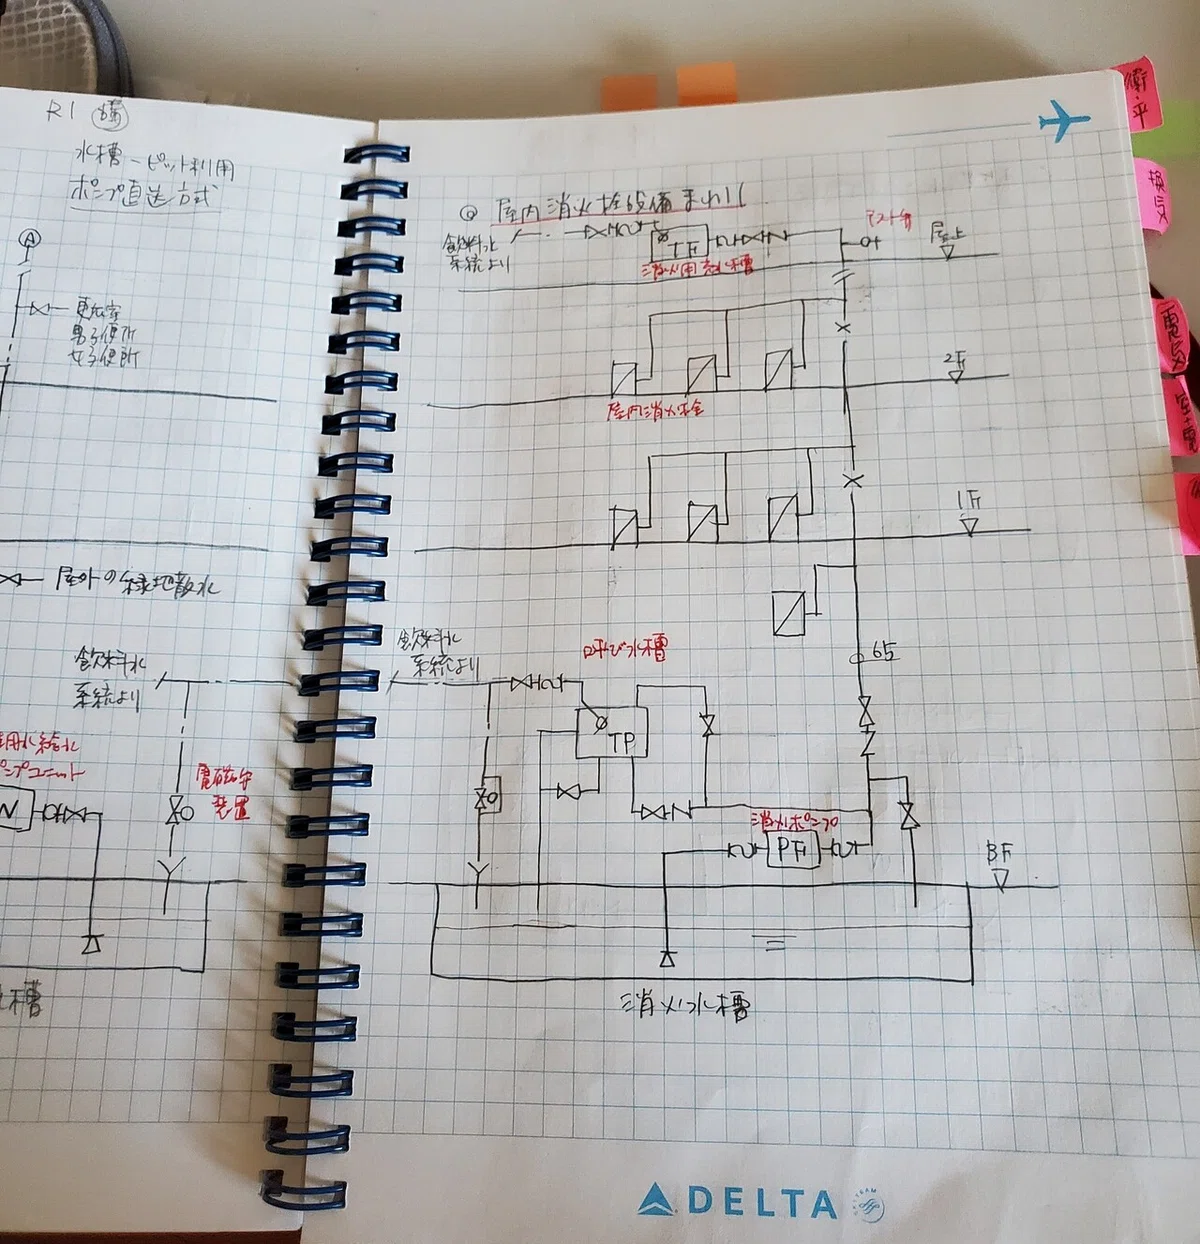 R1
水槽-ピット利用
ポンプ直送方式
A
更衣室
男子便所
女子便所
屋外の緑地散水
飲料水
系統より
電磁弁
装置
屋内消火栓設備まわり
飲料水
系統より
TF
テスト弁
屋上
2F
屋内消火栓
1F
飲料水
系統より
呼び水槽
65
TP
消火ポンプ
PF
BF
消火水槽
DELTA
SKYTEAM
衛・平
換気
電気